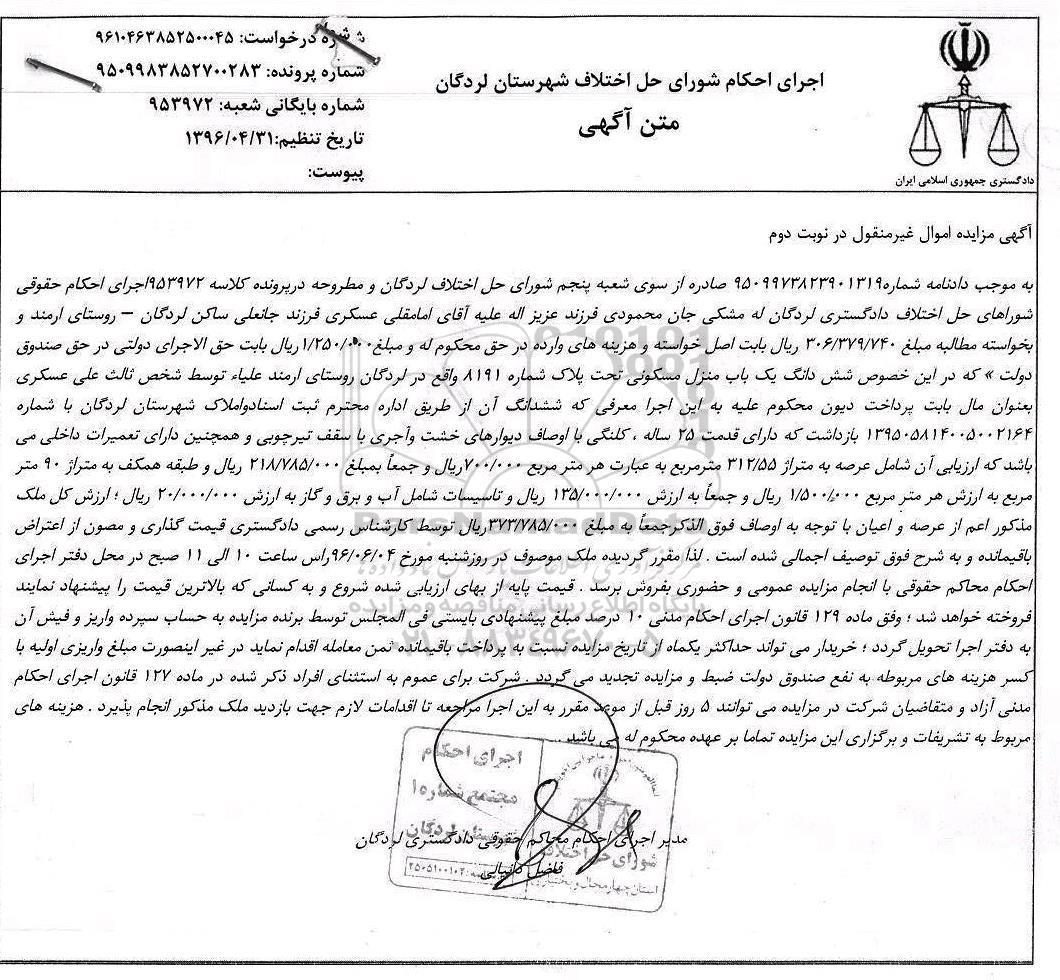 شماره درخواست: ۹۶۱۰۴۶۳۸۵۲۵۰۰۰۴۵
شماره پرونده: ۹۵۰۹۹۸۳۸۵۲۷۰۰۲۸۳
شماره بایگانی شعبه: ۹۵۳۹۷۲
تاریخ تنظیم:۱۳۹۶/۰۴/۳۱
پیوست:
اجرای احکام شورای حل اختلاف شهرستان لردگان
متن آگهی
دادگستری جمهوری اسلامی ایران
آگهی مزایده اموال غیرمنقول در نوبت دوم
به موجب دادنامه شماره۹۵۰۹۹۷۳۸۲۳۹۰۱۳۱۹ صادره از سوی شعبه پنجم شورای حل اختلاف لردگان و مطروحه درپرونده کلاسه ۹۵۳۹۷۲اجرای احکام حقوقی
شوراهای حل اختلاف دادگستری لردگان له مشکی جان محمودی فرزند عزیز اله علیه آقای امامقلی عسکری فرزند جانعلی ساکن لردگان – روستای ارمند و
بخواسته مطالبه مبلغ ۳۰۶/۳۷۹/۷۴۰ ریال بابت اصل خواسته و هزینه های وارده در حق محکوم له و مبلغ۱/۲۵۰/۰۰۰ریال بابت حق الاجرای دولتی در حق صندوق
دولت » که در این خصوص شش دانگ یک باب منزل مسکونی تحت پلاک شماره ۸۱۹۱ واقع در لردگان روستای ارمند علیاء توسط شخص ثالث علی عسکری
بعنوان مال بابت پرداخت دیون محکوم علیه به این اجرا معرفی که ششدانگ آن از طریق اداره محترم ثبت اسنادواملاک شهرستان لردگان با شماره
۱۳۹۵۰۵۸۱۴۰۰۵۰۰۲۱۶۴ بازداشت که دارای قدمت ۲۵ ساله ، کلنگی با اوصاف دیوارهای خشت وآجری با سقف تیرچوبی و همچنین دارای تعمیرات داخلی می
باشد که ارزیابی آن شامل عرصه به متراژ ۳۱۲/۵۵ مترمربع به عبارت هر متر مربع ۷۰۰/۰۰۰ریال و جمعاً بمبلغ ۲۱۸/۷۸۵/۰۰۰ ریال و طبقه همکف به متراژ ۹۰ متر
مربع به ارزش هر متر مربع ۱/۵۰۰/۰۰۰ ریال و جمعاً به ارزش ۱۳۵/۰۰۰/۰۰۰ ریال و تاسیسات شامل آب و برق و گاز به ارزش ۲۰/۰۰۰/۰۰۰ ریال ؛ ارزش کل ملک
مذکور اعم از عرصه و اعیان با توجه به اوصاف فوق الذکرجمعاً به مبلغ ۳۷۳/۷۸۵/۰۰۰ریال توسط کارشناس رسمی دادگستری قیمت گذاری و مصون از اعتراض
باقیمانده و به شرح فوق توصیف اجمالی شده است . لذا مقرر گردیده ملک موصوف در روزشنبه مورخ ۹۶/۰۶/۰۴راس ساعت ۱۰ الی ۱۱ صبح در محل دفتر اجرای
احکام محاکم حقوقی با انجام مزایده عمومی و حضوری بفروش برسد . قیمت پایه از بهای ارزیابی شده شروع و به کسانی که بالاترین قیمت را پیشنهاد نمایند
فروخته خواهد شد ؛ وفق ماده ۱۲۹ قانون اجرای احکام مدنی ۱۰ درصد مبلغ پیشنهادی بایستی فی المجلس توسط برنده مزایده به حساب سپرده واریز و فیش آن
به دفتر اجرا تحویل گردد ؛ خریدار می تواند حداکثر یکماه از تاریخ مزایده نسبت به پرداخت باقیمانده ثمن معامله اقدام نماید در غیر اینصورت مبلغ واریزی اولیه با
کسر هزینه های مربوطه به نفع صندوق دولت ضبط و مزایده تجدید می گردد . شرکت برای عموم به استثنای افراد ذکر شده در ماده ۱۲۷ قانون اجرای احکام
مدنی آزاد و متقاضیان شرکت در مزایده می توانند ۵ روز قبل از موعد مقرر به این اجرا مراجعه تا اقدامات لازم جهت بازدید ملک مذکور انجام پذیرد . هزینه های
مربوط به تشریفات و برگزاری این مزایده تماما بر عهده محکوم له می باشد .
اجرای احکام
مجتمع شماره ۱
مدیر اجرای احکام محاکم حقوقی دادگستری لردگان
شورای حل اختلاف
فاضل دانیالی
استان چهارمحال و بختیاری
ParsNamadData
پایگاه اطلاع رسانی مناقصه و مزایده
۰۲۱-۸۸۳۴۹۶۷۰-۵